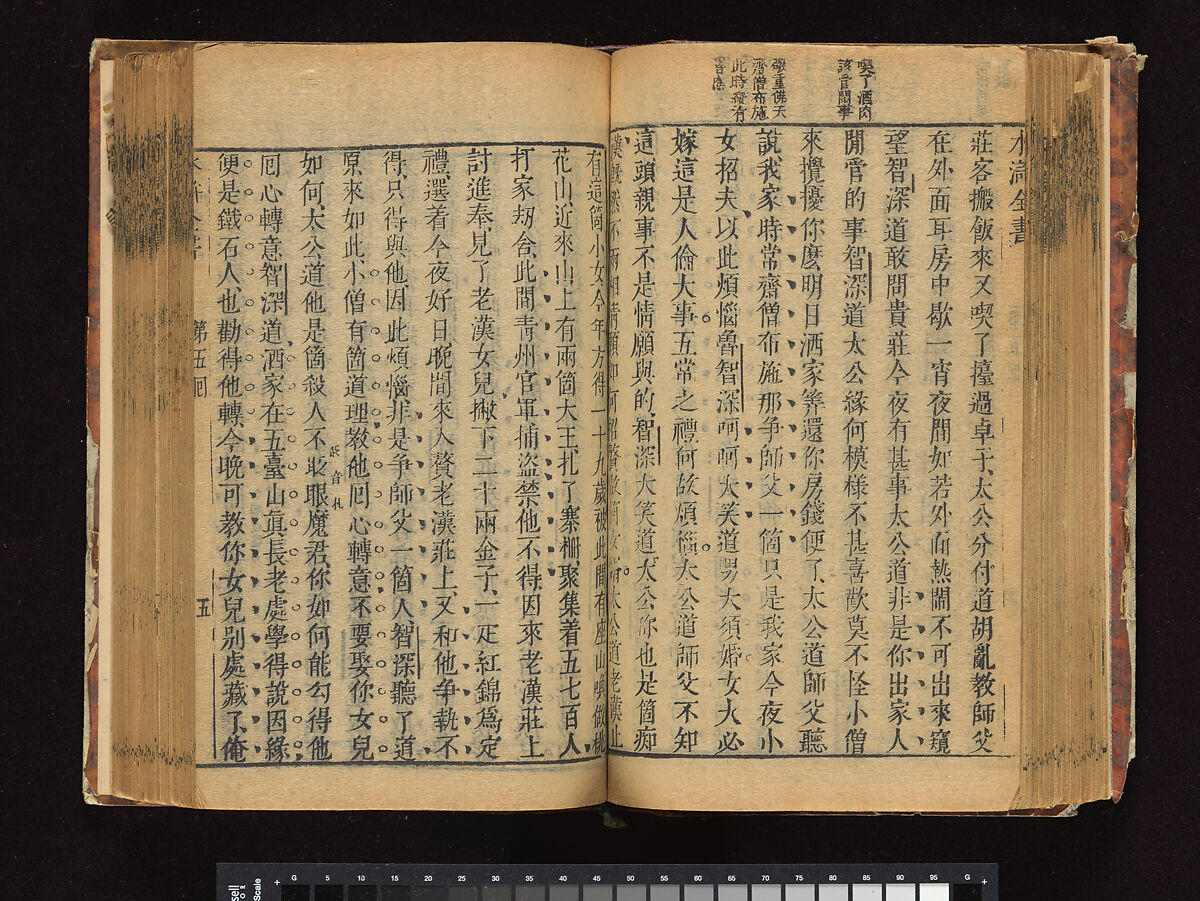 喫了酒肉
該管閒事
敬重佛天
齋僧布施
此時發有
水滸全書
莊客搬飯來又喫了擡過卓子太公分付道胡亂教師父
在外面耳房中歇一宵夜間如若外面熱鬧不可出來窺
望智深道敢問貴莊今夜有甚事太公道非是你出家人
閒管的事智深道太公緣何模樣不甚喜歡莫不怪小僧
來攪擾你麽明日洒家筭還你房錢便了太公道師父聽
說我家時常齋僧布施那爭師父一箇只是我家今夜小
女招夫以此煩惱魯智深呵呵大笑道男大須婚女大必
嫁這是人倫大事五常之禮何故煩惱太公道師父不知
這頭親事不是情願與的智深大笑道太公你也是箇痴
漢既然不兩相情願如何招贅做箇女壻太公道老漢止
有這箇小女今年方得一十九歲被此間有座山喚做桃
花山近來山上有兩箇大王扎了寨柵聚集着五七百人
打家刼舍此間青州官軍捕盜禁他不得因來老漢莊上
討進奉見了老漢女兒撇下二十兩金子一疋紅錦爲定
禮選着今夜好日晚間來入贅老漢莊上又和他爭執不
得只得與他因此煩惱非是爭師父一箇人智深聽了道
原來如此小僧有箇道理教他囘心轉意不要娶你女兒
如何太公道他是箇殺人不貶眼魔君你如何能勾得他
音札
囘心轉意智深道洒家在五臺山眞長老處學得說因緣
便是鐵石人也勸得他轉今晚可教你女兒別處藏了俺
第五囘
五
G 5 10 15 20 25 30 35 40 45 50 55 60 65 70 75 80 85 90 95 G
Scale